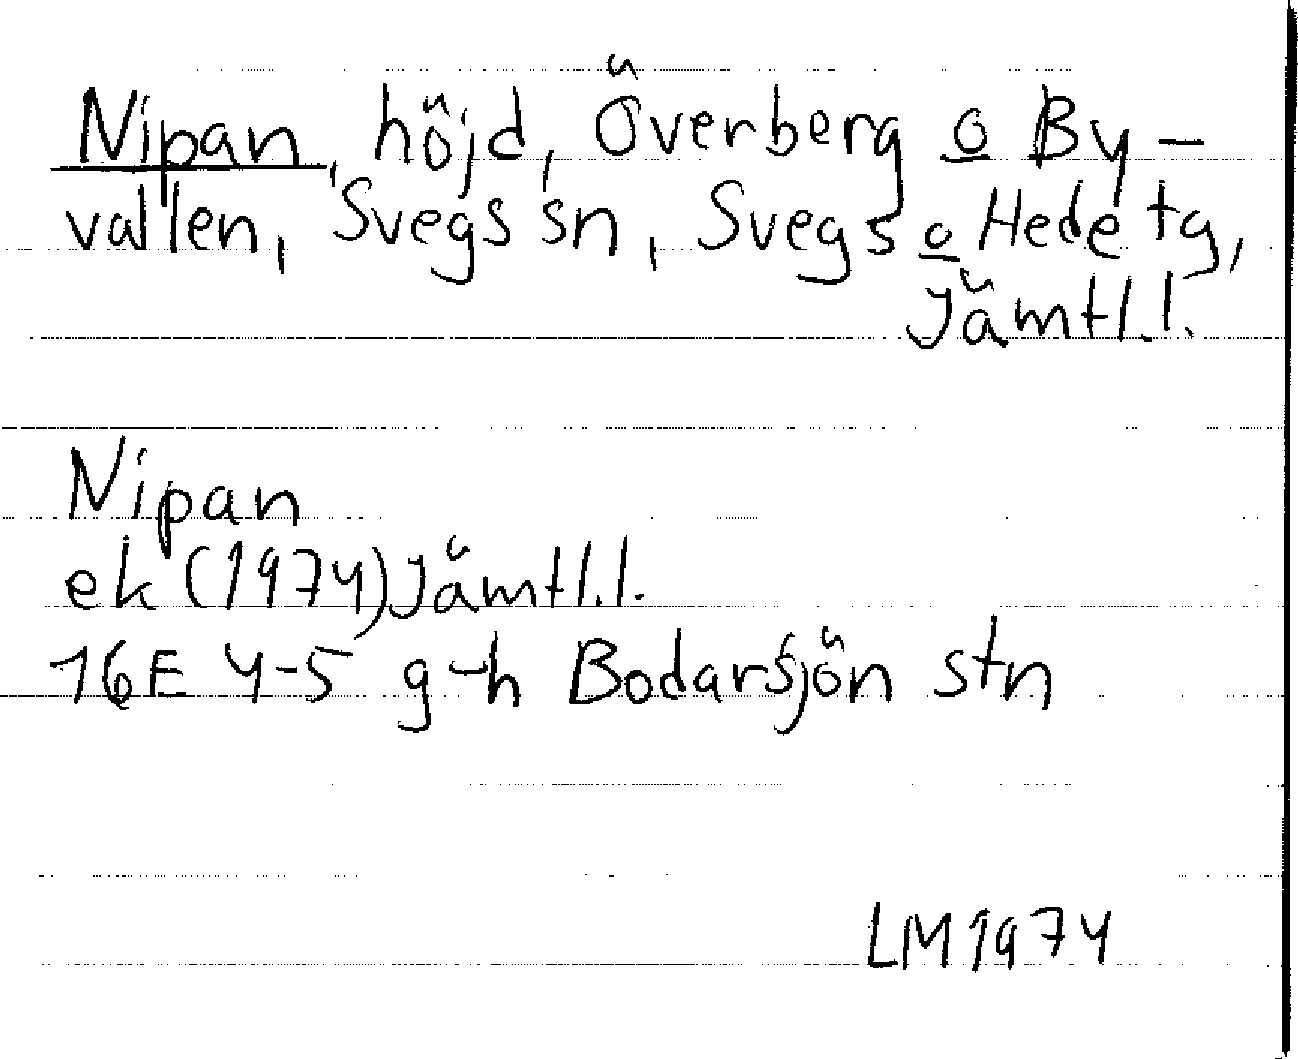 Nipan, höjd, Överberg o By-
vallen, Svegs sn, Svegs o Hede tg,
Jämtl.l.
Nipan
ek (1974) Jämtl.l.
16E 4-5 g-h Bodarsjön stn
LM 1974